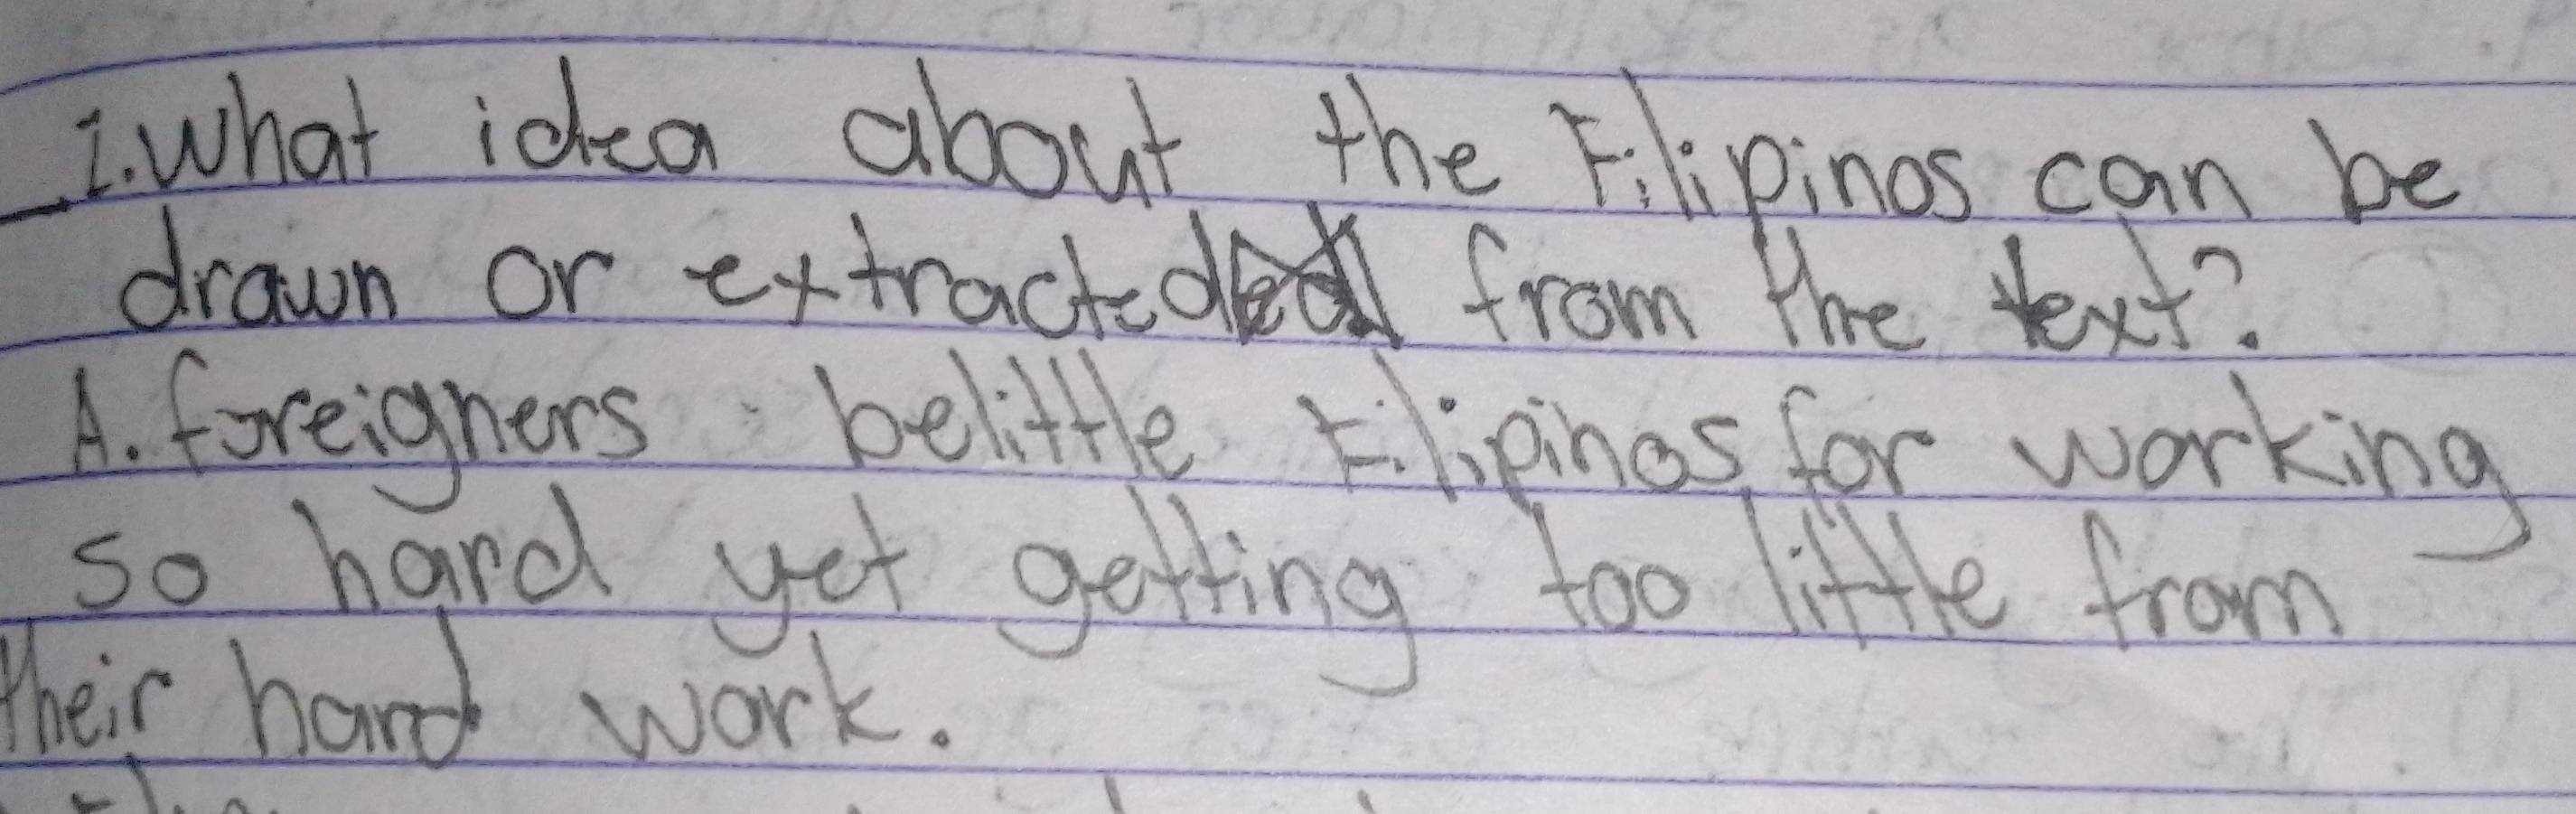 1. What idea about the Filipinos can be
drawn or extracted from the text?
A. foreigners belittle Filipinos for working
so hard yet getting too little from
their hard work.